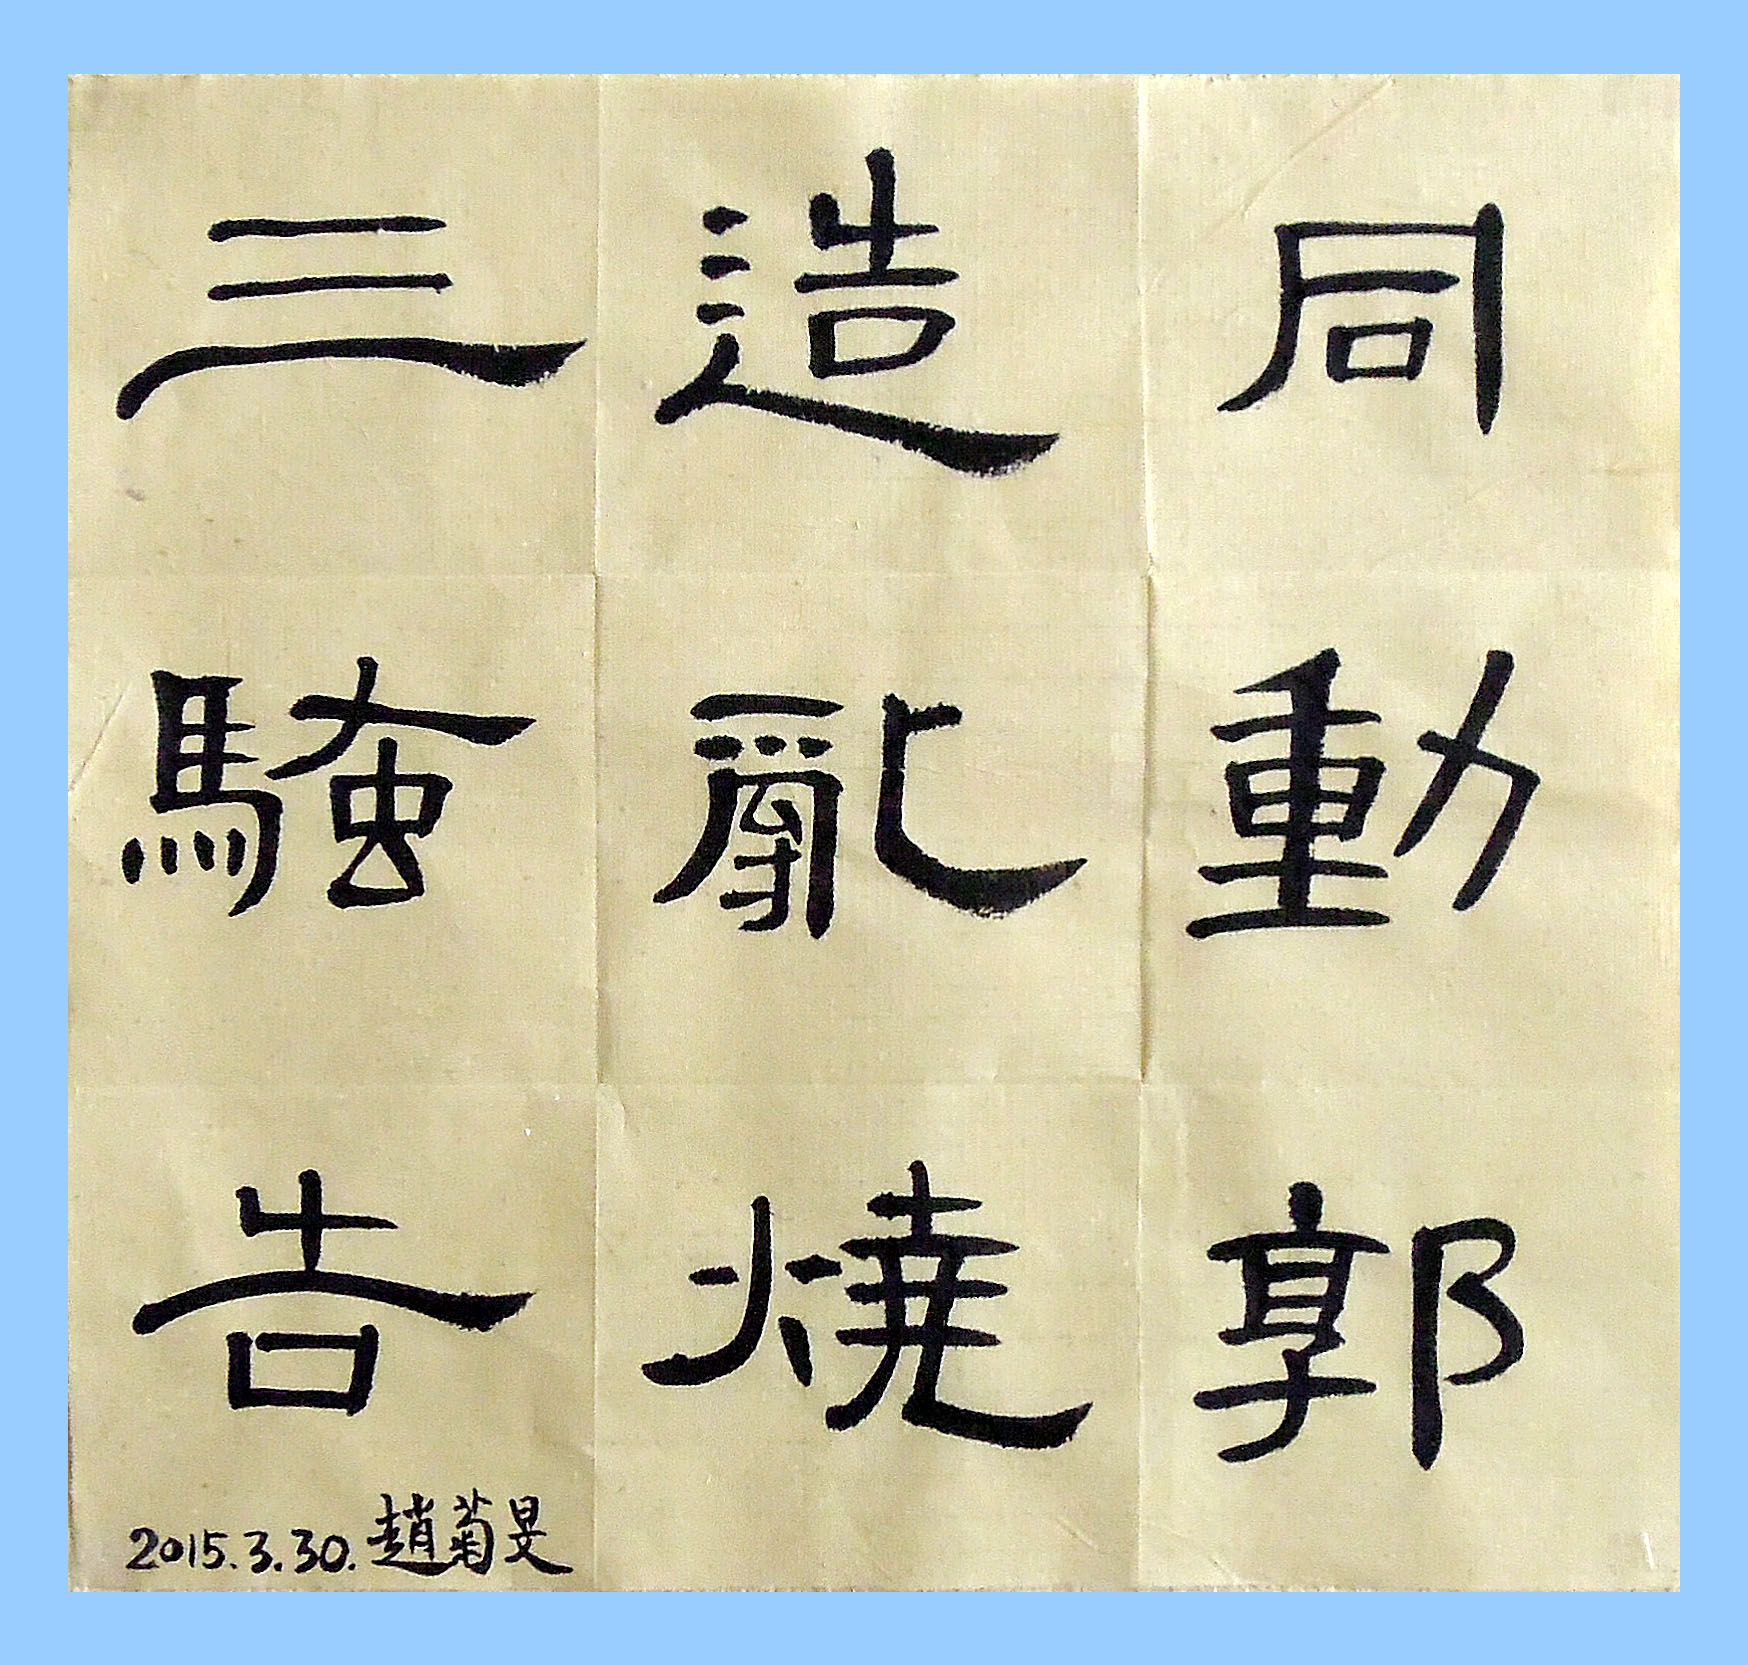 同動郭
造亂燒
三騷告
2015.3.30.趙菊旻